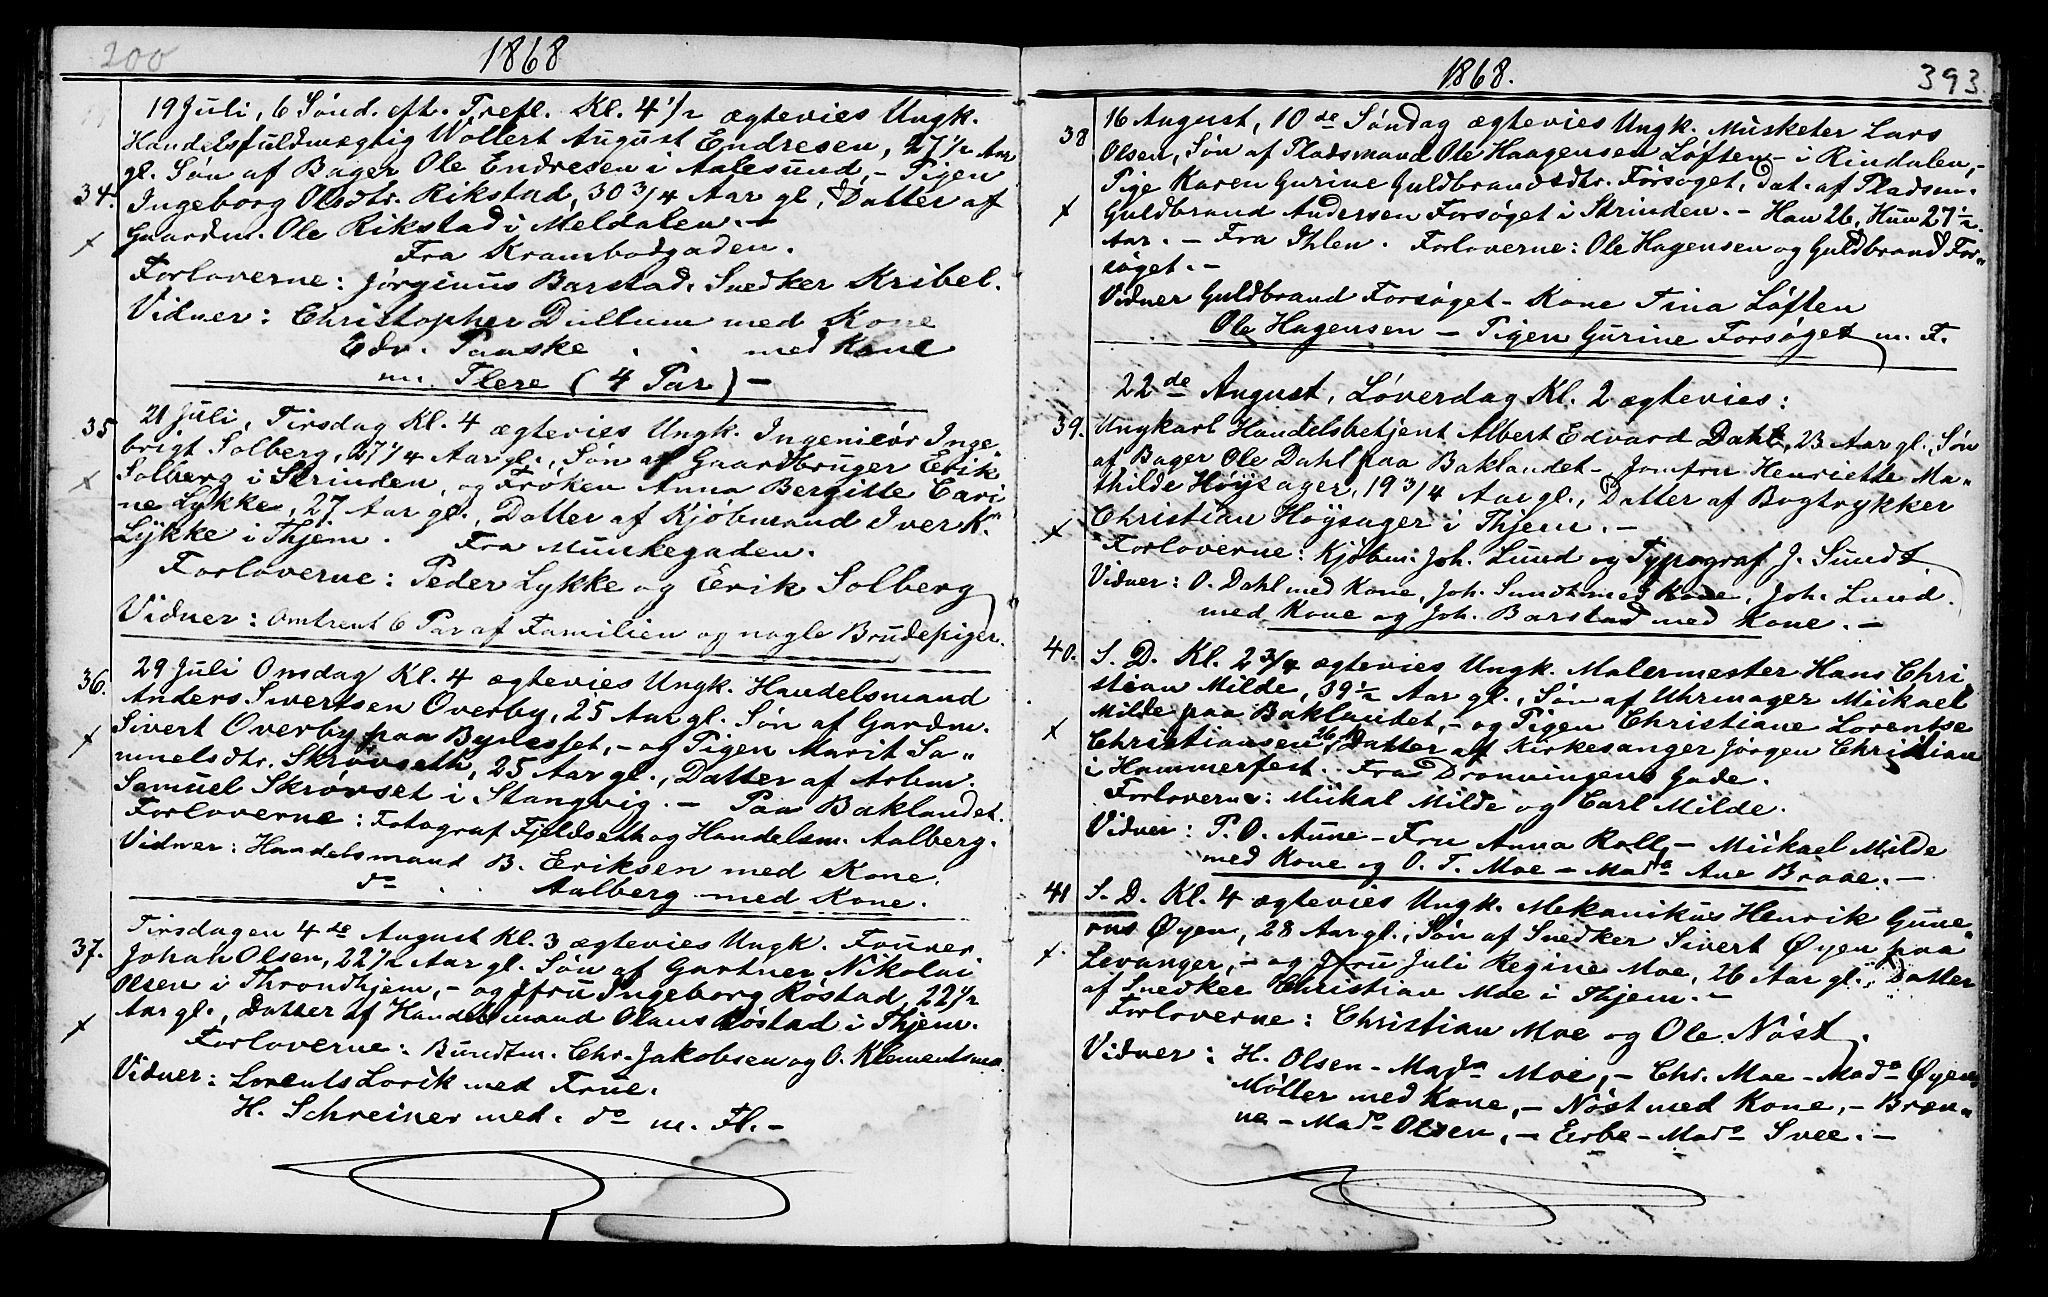 200
1868
19 Juli, 6 Sønd. eft. Trefl. Kl. 4 1/2 ægtevies Ungk.
Handelsfuldmægtig Wollert August Endresen, 27 1/2 Aar
gl. Søn af Bager Ole Endresen i Aalesund, - Pigen
34. Ingeborg Olsdtr. Rikstad, 30 3/4 Aar gl, Datter af
x Gaardm. Ole Rikstad i Meldalen. -
Fra Krambodgaden.
Forloverne: Jørginus Barstad, Snedker Kribel.
Vidner: Christopher Dullum med Kone
Edv. Paaske . . med Kone
m. Flere (4 Par) -
35 21 Juli, Tirsdag Kl. 4 ægtevies Ungk. Ingeniør Inge-
brigt Solberg, 27 1/4 Aar gl., Søn af Gaardbruger Erik
x Solberg i Strinden, og Frøken Anna Bergitte Cari
ne Lykke, 27 Aar gl., Datter af Kjøbmand Iver K.
Lykke i Thjem. Fra Munkegaden.
Forloverne: Peder Lykke og Erik Solberg
Vidner: Omtrent 6 Par af Familien og nogle Brudepiger.
36. 29 Juli Onsdag Kl. 4 ægtevies Ungk. Handelsmand
Anders Sivertsen Overby, 25 Aar gl. Søn af Gardm.
x Sivert Overby paa Bynesset, - og Pigen Marit Sa"
muelsdtr. Skrøvseth, 25 Aar gl., Datter af Arbm.
Samuel Skrøvset i Stangvig. - Paa Baklandet.
Forloverne: Fotograf Fjeldseth og Handelsm. Aalberg.
Vidner: Handelsmand B. Eriksen med Kone.
do . . Aalberg med Kone.
37. Tirsdagen 4de August Kl. 3 ægtevies Ungk. Fourer
Johan Olsen, 22 1/2 Aar gl. Søn af Gartner Nikolai
Olsen i Throndhjem, - og Jfru Ingeborg Røstad, 22 1/2
x Aar gl., Datter af Handelsmand Olaus Røstad i Thjem.
Forloverne: Bundtm. Chr. Jakobsen og O. Klementsen
Vidner: Lorents Lorik med Frue.
H. Schreiner med. do m. Fl. -
1868.
393.
38 16 August, 10de Søndag ægtevies Ungk. Musketer Lars
Olsen, Søn af Pladsmand Ole Haagensen Løften - i Rindalen, -
Pige Karen Gurine Guldbrandsdtr. Forsøget, Dat. af Pladsm.
x Guldbrand Andersen Forsøget i Strinden. - Han 26, Hun 27 1/2
Aar. - Fra Ihlen. Forloverne: Ole Hagensen og Guldbrand For"
søget. -
Vidner Guldbrand Forsøget - Kone Tina Løften
Ole Hagensen - Pigen Gurine Forsøget m. F.
22de August, Løverdag Kl. 2 ægtevies:
39. Ungkarl Handelsbetjent Albert Edvard Dahl, 23 Aar gl., Søn
af Bager Ole Dahl paa Baklandet - Jomfru Henriette Ma"
thilde Høysager, 19 3/4 Aar gl., Datter af Bogtrykker
x Christian Høysager i Thjem. -
Forloverne: Kjøbm: Joh. Lund og Typograf J. Sundt.
Vidner: O. Dahl med Kone, Joh. Sundt med Kone, Joh. Lund.
med Kone og Joh. Barstad med Kone. -
40. S. D. Kl. 2 3/4 ægtevies Ungk. Malermester Hans Chri
stian Milde, 39 1/2 Aar gl., Søn af Uhrmager Mickael
Milde paa Baklandet, - og Pigen Christiane Lorentse
x Christiansen, 26 A. Datter af Kirkesanger Jørgen Christian
i Hammerfest. Fra Dronningens Gade.
Forloverne: Mickal Milde og Carl Milde.
Vidner: P. O. Aune - Fru Anna Roll - Mickael Milde
med Kone og O. T. Moe - Mada Ane Braae. -
41 S. D. Kl. 4 ægtevies Ungk. Mekanikus Henrik Gune"
rus Øyen, 28 Aar gl., Søn af Snedker Sivert Øyen paa
x. Levanger, - og Jfru Juli Regine Moe, 26 Aar gl., Datter
af Snedker Christian Moe i Thjem. -
Forloverne: Christian Moe og Ole Nøst.
Vidner: H. Olsen - Mada Moe, - Chr. Moe - Mada Øyen,
Møller med Kone, - Nøst med Kone, - Bræn"
ne - Mada Olsen, - Eribe - Mada Svee. -